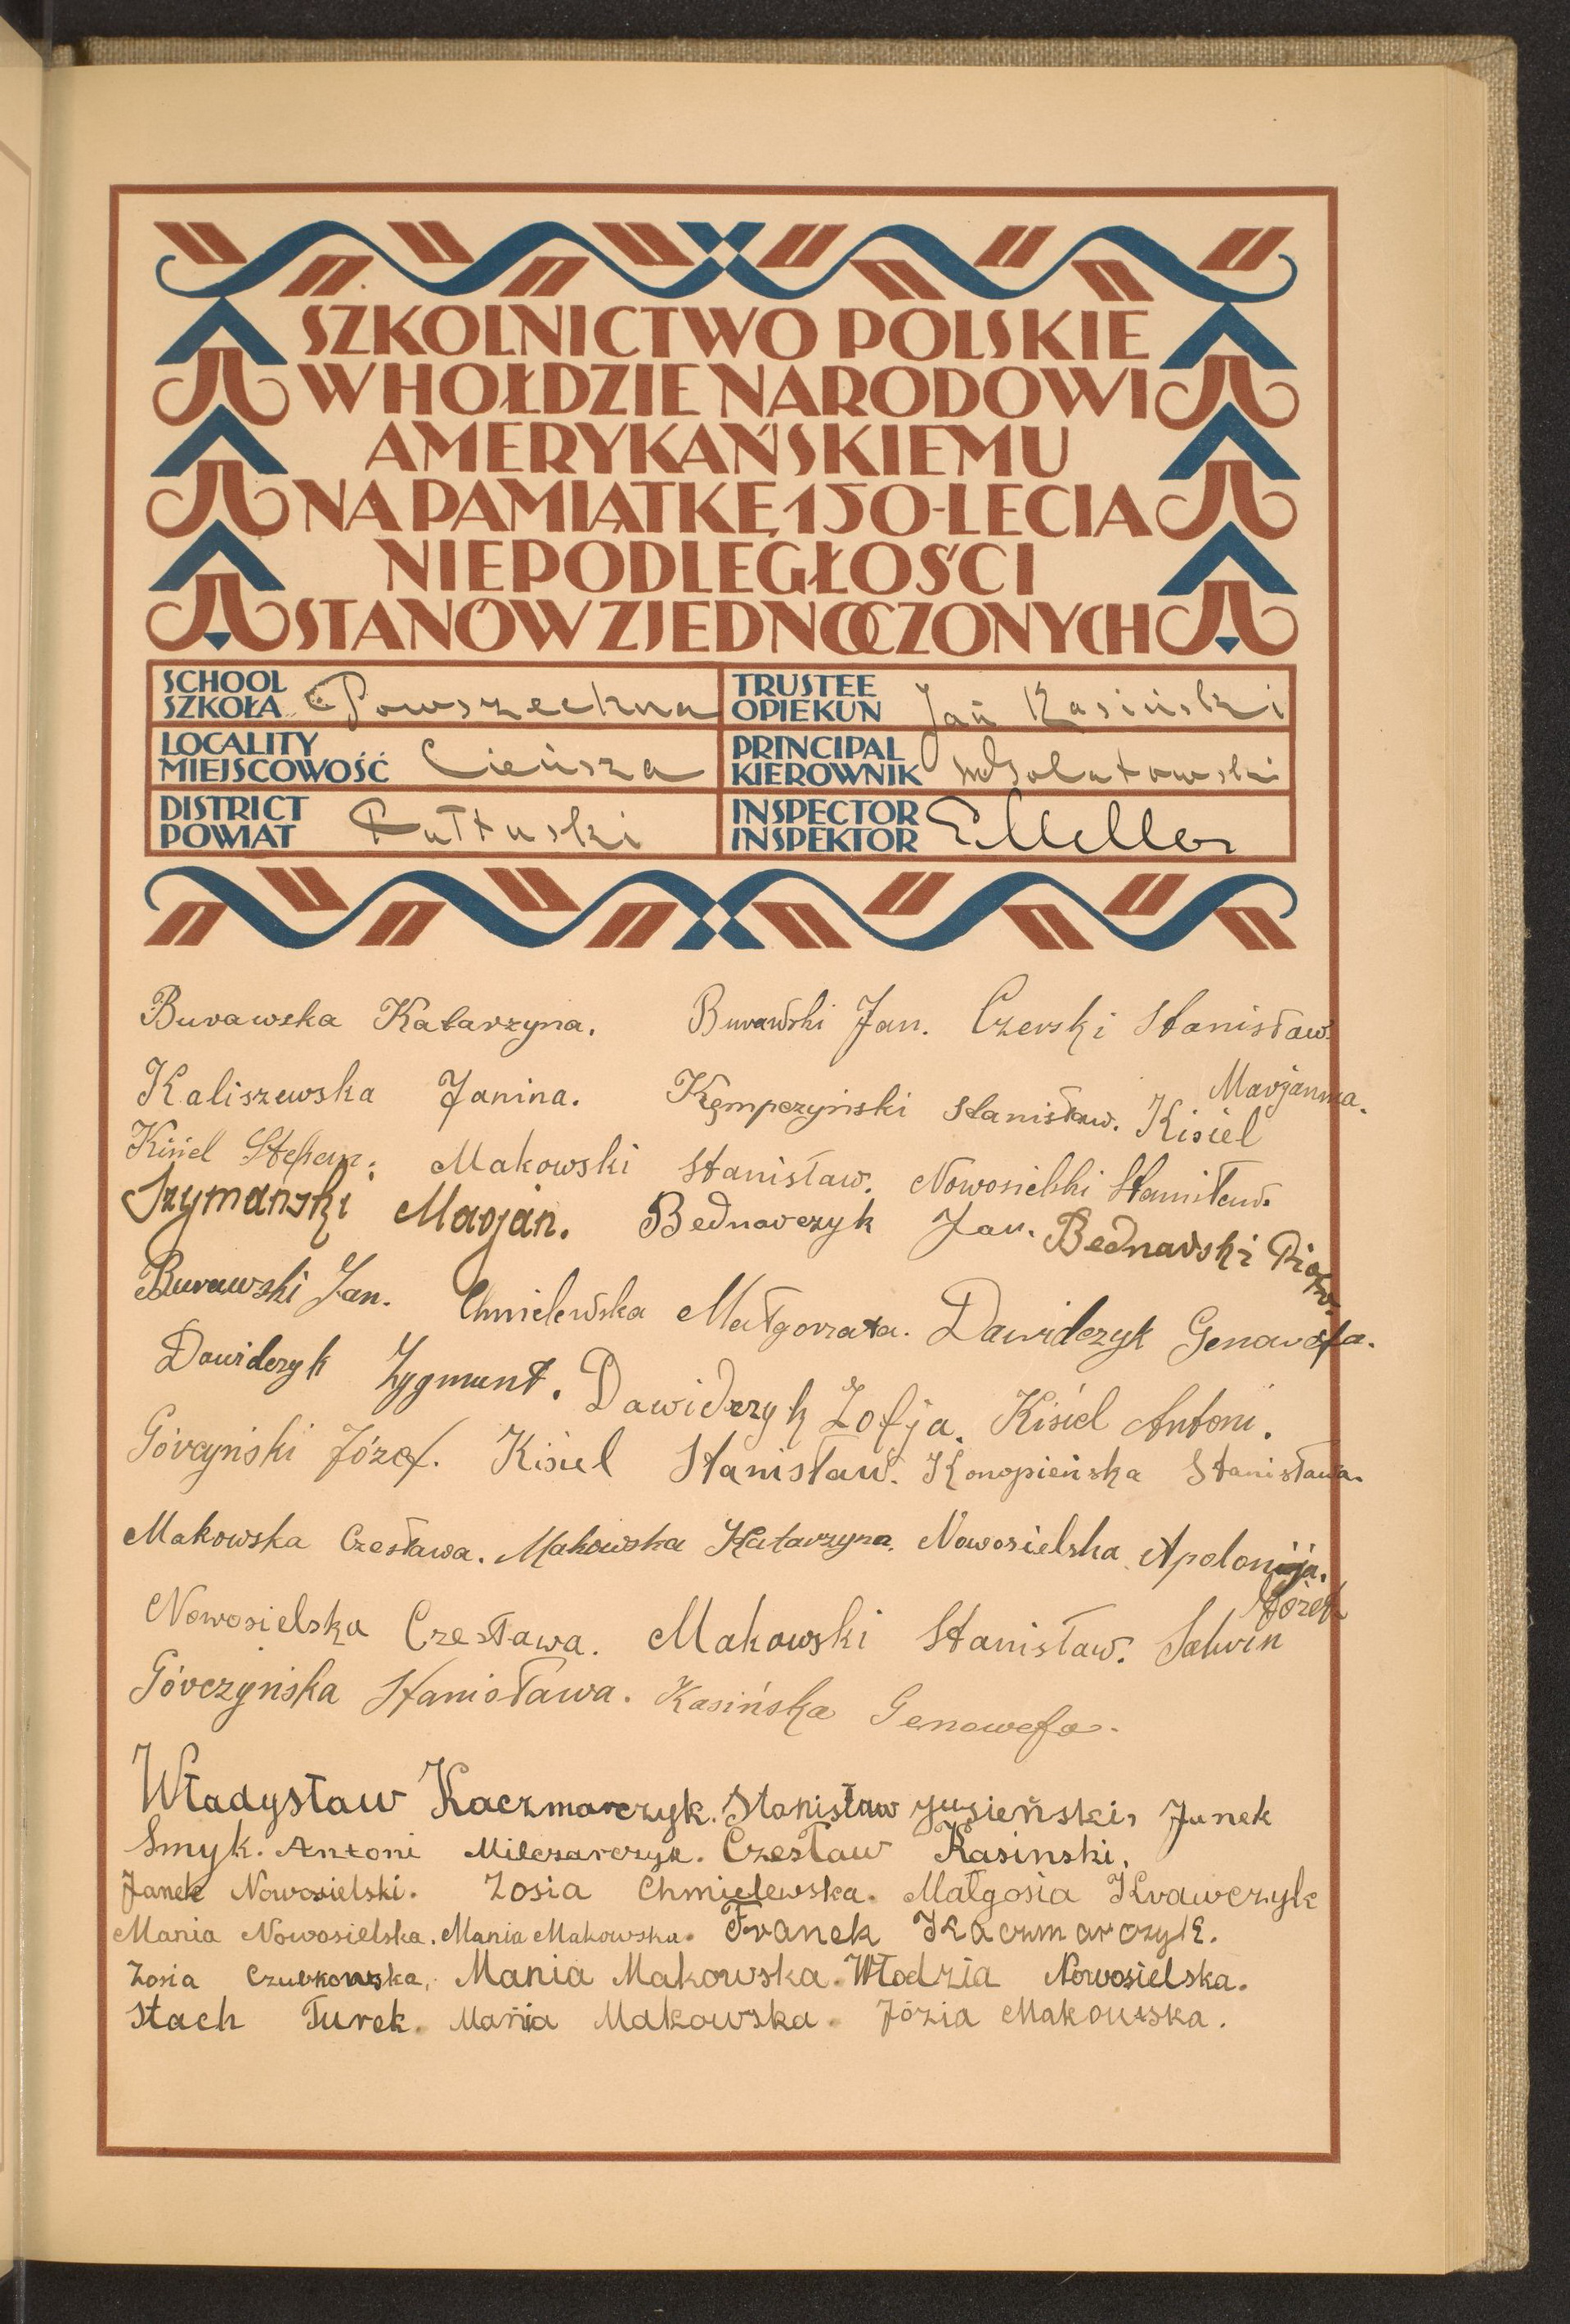 SZKOLNICTWO POLSKIE
W HOŁDZIE NARODOWI
AMERYKAŃSKIEMU
NA PAMIĄTKĘ 150-LECIA
NIEPODLEGŁOŚCI
STANÓW ZJEDNOCZONYCH
SCHOOL
SZKOŁA Powszechna
TRUSTEE
OPIEKUN Jan Kasiński
LOCALITY
MIEJSCOWOŚĆ Cieńsza
PRINCIPAL
KIEROWNIK
DISTRICT
POWIAT Pułtuski
INSPECTOR
INSPEKTOR
Burawska Katarzyna. Burawski Jan. Czerski Stanisław
Kaliszewska Janina. Kęmpczyński Stanisław. Kisiel Marjanna.
Kisiel Stefan. Makowski Stanisław. Nowosielski Stanisław.
Szymański Marjan. Bednarczyk Jan. Bednarski Piotr.
Burawski Jan. Chmielewska Małgorzata. Dawidczyk Genowefa.
Dawidczyk Zygmunt. Dawidczyk Zofja. Kisiel Antoni.
Górczyński Józef. Kisiel Stanisław. Konopieńska Stanisława.
Makowska Czesława. Makowska Katarzyna. Nowosielska Apolonija.
Nowosielska Czesława. Makowski Stanisław. Salwin Józef
Górczyńska Stanisława. Kasińska Genowefa.
Władysław Kaczmarczyk. Stanisław Janek
Smyk. Antoni Milczarczyk. Czesław Kasinski.
Janek Nowosielski. Zosia Chmielewska. Małgosia Krawczyk
Mania Nowosielska. Mania Makowska. Franek Kaczmarczyk.
Zosia Mania Makowska. Włodzia Nowosielska.
Stach Turek. Mańia Makowska. Józia Makowska.